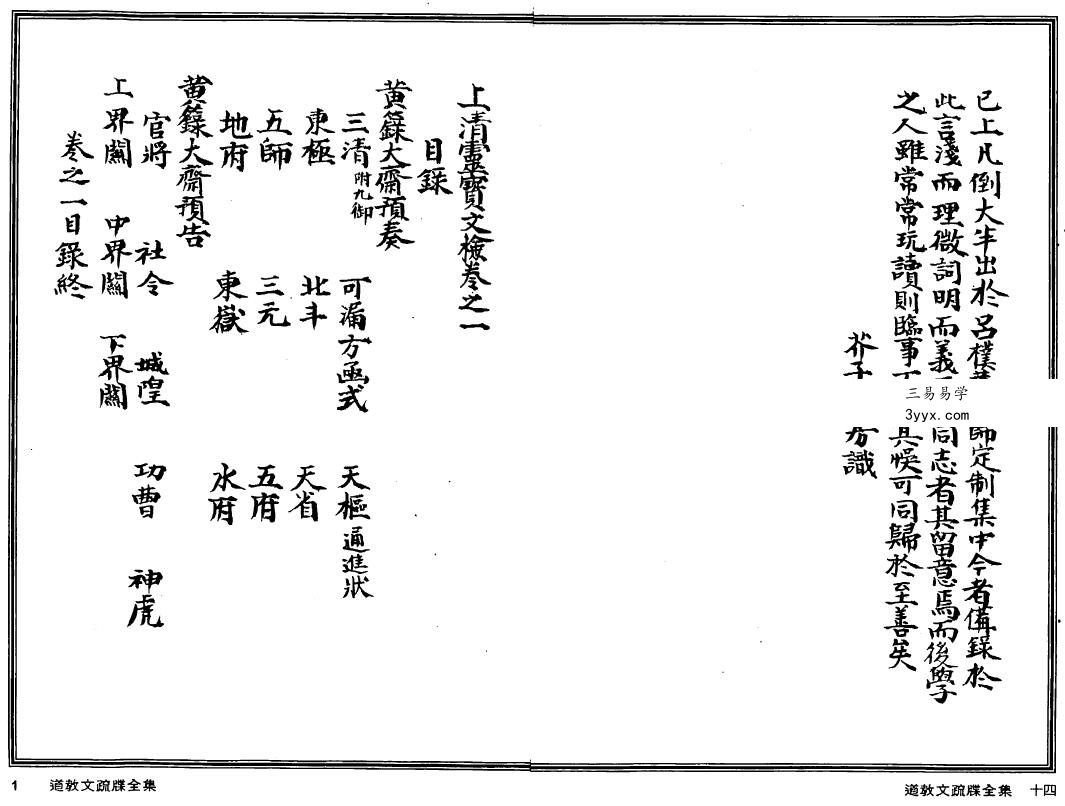 已上凡倒大半出於呂樸師定制集中今者備錄於
此言淺而理微詞明而義同志者其留意焉而後學
之人雖常常玩讀則臨事其悞可同歸於至善矣
芥子識
三易易学
3yyx.com
道教文疏牒全集 十四
上清靈寶文檢卷之一
目錄
黃籙大齋預奏
三清附九御 可漏方函式 天樞通進狀
東極 北斗 天省
五師 三元 五府
地府 東嶽 水府
黃籙大齋預告
官將 社令 城隍 功曹 神虎
上界關 中界關 下界關
卷之一目錄終
1 道教文疏牒全集